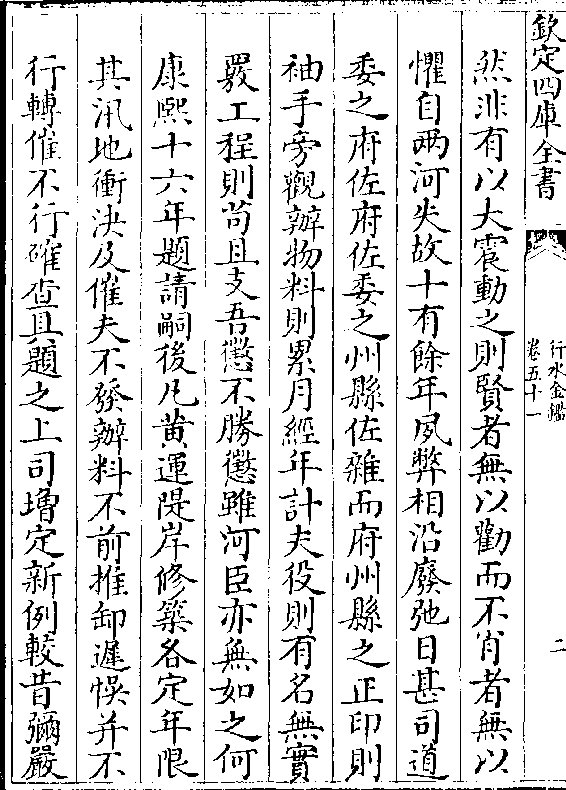 欽定四庫全書
行水金鑑
卷五十一
二
然非有以大震動之則賢者無以勸而不肖者無以
懼自兩河失故十有餘年夙弊相沿廢弛日甚司道
委之府佐府佐委之州縣佐雜而府州縣之正印則
袖手旁觀辦物料則累月經年計夫役則有名無實
覈工程則茍且支吾懲不勝懲雖河臣亦無如之何
康熙十六年題請嗣後凡黄運隄岸修築各定年限
其汛地衝決及催夫不發辦料不前推卸遲悞并不
行轉催不行確查具題之上司增定新例較昔彌嚴